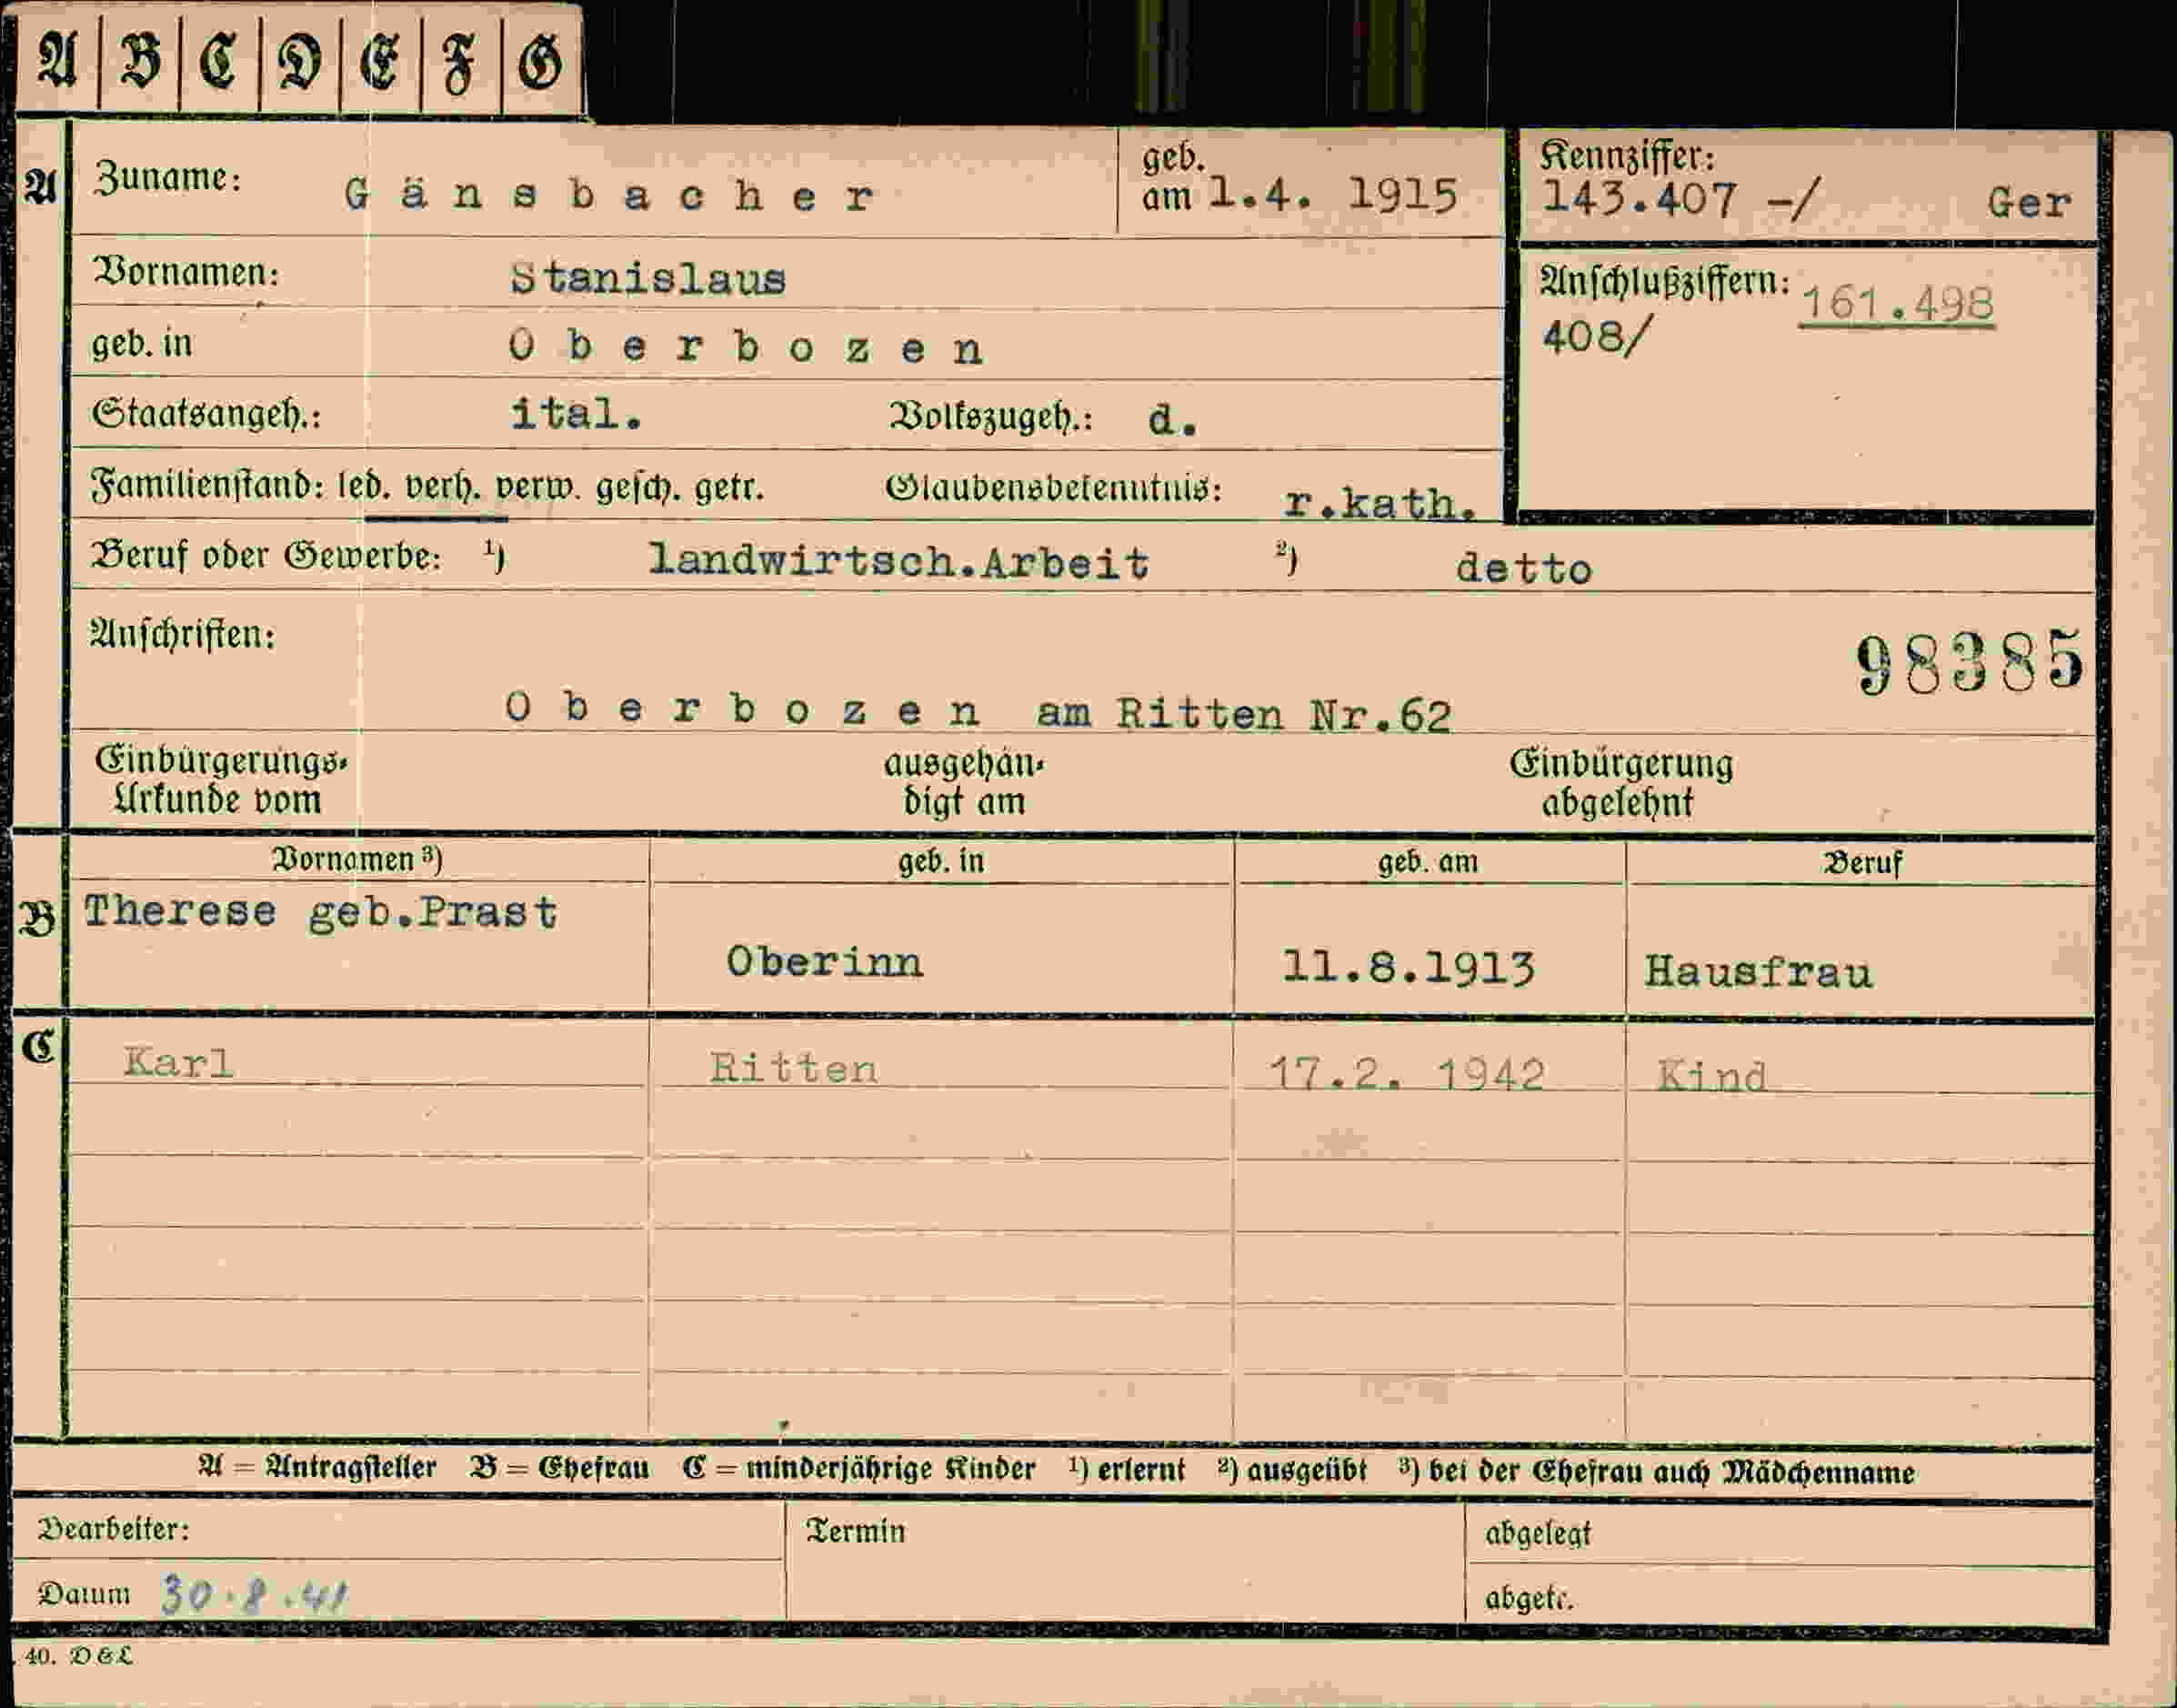 A B C D E F G
A Zuname: Gänsbacher geb. am 1.4. 1915
Kennziffer: 143.407 -/ Ger
Vornamen: Stanislaus
Anschlußziffern: 161.498
408/
geb. in Oberbozen
Staatsangeh.: ital. Volkszugeh.: d.
Familienstand: led. verh. verw. gesch. getr. Glaubensbekenntnis: r.kath.
Beruf oder Gewerbe: ¹) landwirtsch.Arbeit ²) detto
Anschriften:
98385
Oberbozen am Ritten Nr.62
Einbürgerungs-Urkunde vom ausgehändigt am Einbürgerung abgelehnt
Vornamen ³) geb. in geb. am Beruf
B Therese geb.Prast
Oberinn 11.8.1913 Hausfrau
C Karl Ritten 17.2. 1942 Kind
A = Antragsteller B = Ehefrau C = minderjährige Kinder ¹) erlernt ²) ausgeübt ³) bei der Ehefrau auch Mädchenname
Bearbeiter: Termin abgelegt
Datum 30.8.41 abgetr.
40. D & L